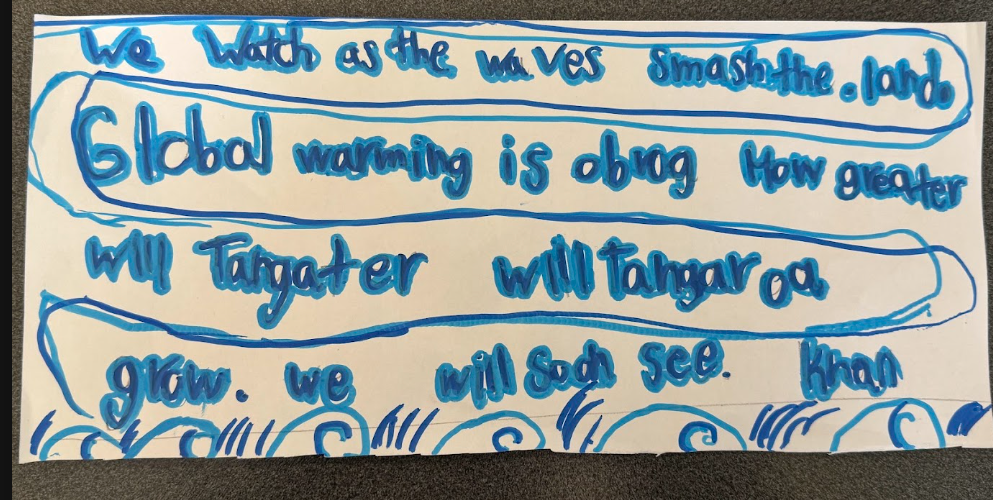 We Watch as the waves smash.the.land.
Global warming is obrog How greater
will Tangater will Tangaroa
grow. we will soon see. Khan